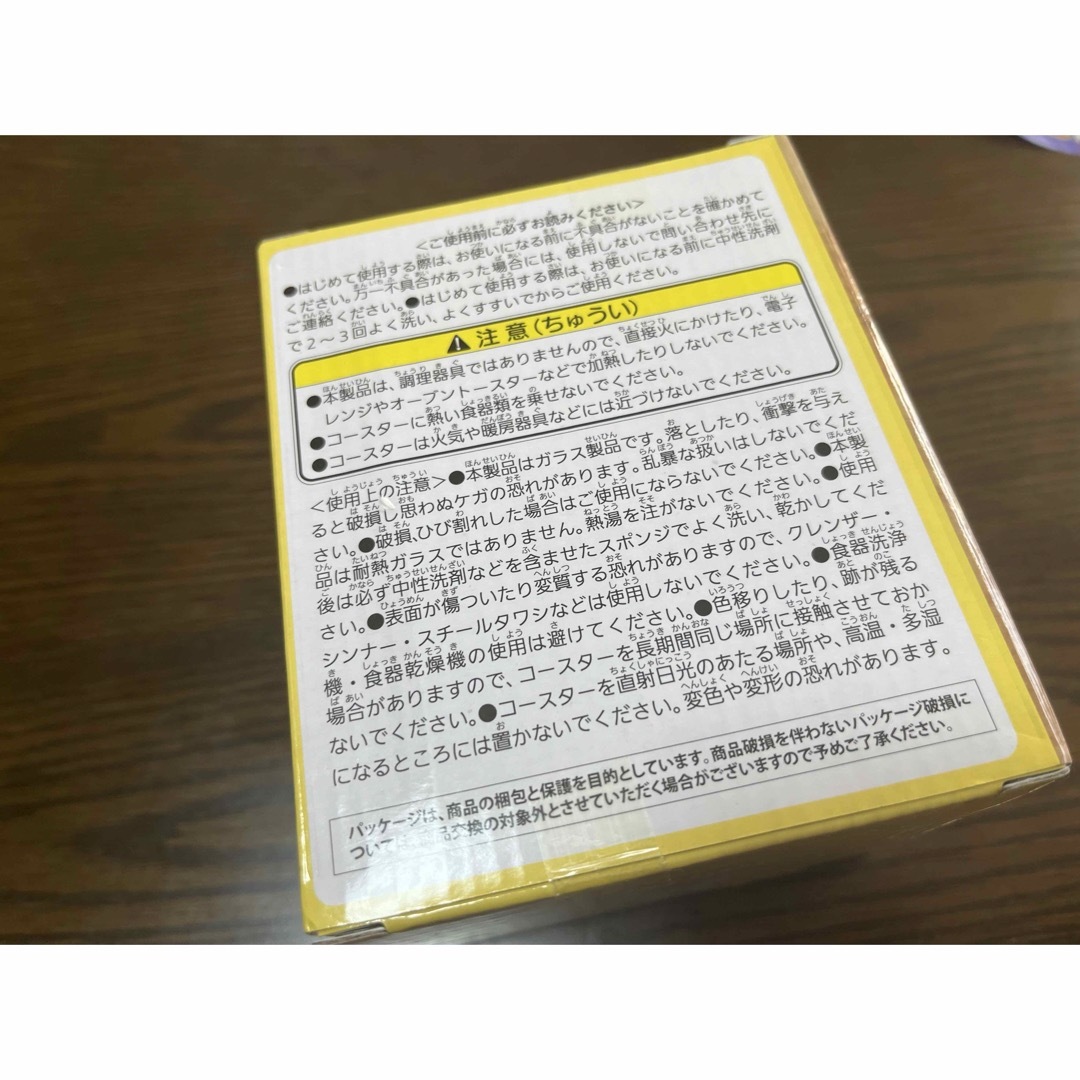 <ご使用前に必ずお読みください>
●はじめて使用する際は、お使いになる前に不具合がないことを確かめて
ください。万一不具合があった場合には、使用しないで問い合わせ先に
ご連絡ください。●はじめて使用する際は、お使いになる前に中性洗剤
で2〜3回よく洗い、よくすすいでからご使用ください。
注意(ちゅうい)
●本製品は、調理器具ではありませんので、直接火にかけたり、電子
レンジやオーブントースターなどで加熱したりしないでください。
●コースターに熱い食器類を乗せないでください。
●コースターは火気や暖房器具などには近づけないでください。
<使用上の注意>●本製品はガラス製品です。落としたり、衝撃を与え
ると破損し思わぬケガの恐れがあります。乱暴な扱いはしないでくだ
さい。●破損、ひび割れした場合はご使用にならないでください。●本製
品は耐熱ガラスではありません。熱湯を注がないでください。●使用
後は必ず中性洗剤などを含ませたスポンジでよく洗い、乾かしてくだ
さい。●表面が傷ついたり変質する恐れがありますので、クレンザー・
シンナー・スチールタワシなどは使用しないでください。●食器洗浄
機・食器乾燥機の使用は避けてください。●色移りしたり、跡が残る
場合がありますので、コースターを長期間同じ場所に接触させておか
ないでください。●コースターを直射日光のあたる場所や、高温・多湿
になるところには置かないでください。変色や変形の恐れがあります。
パッケージは、商品の梱包と保護を目的としています。商品破損を伴わないパッケージ破損に
ついては 品交換の対象外とさせていただく場合がございますので予めご了承ください。